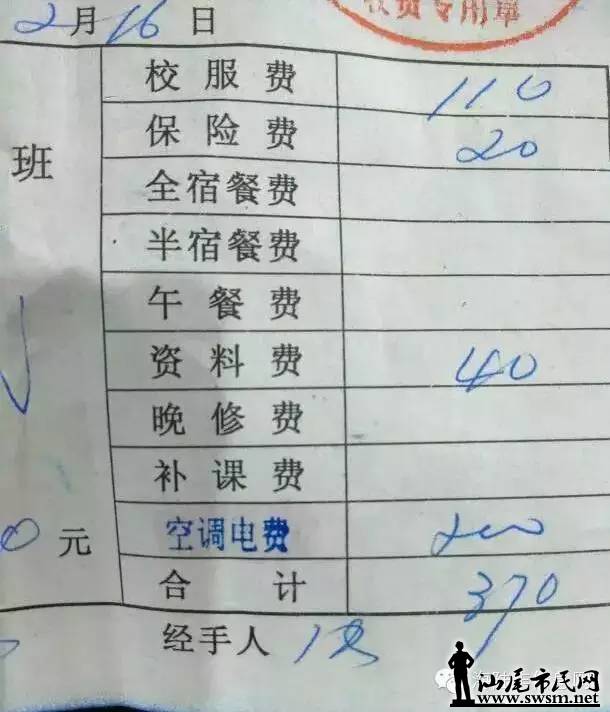 收费专用章
2月16日
班
校服费 110
保险费 20
全宿餐费
半宿餐费
午餐费
资料费 40
晚修费
补课费
0元
空调电费 200
合计 370
经手人
汕尾市民网
www.swsm.net